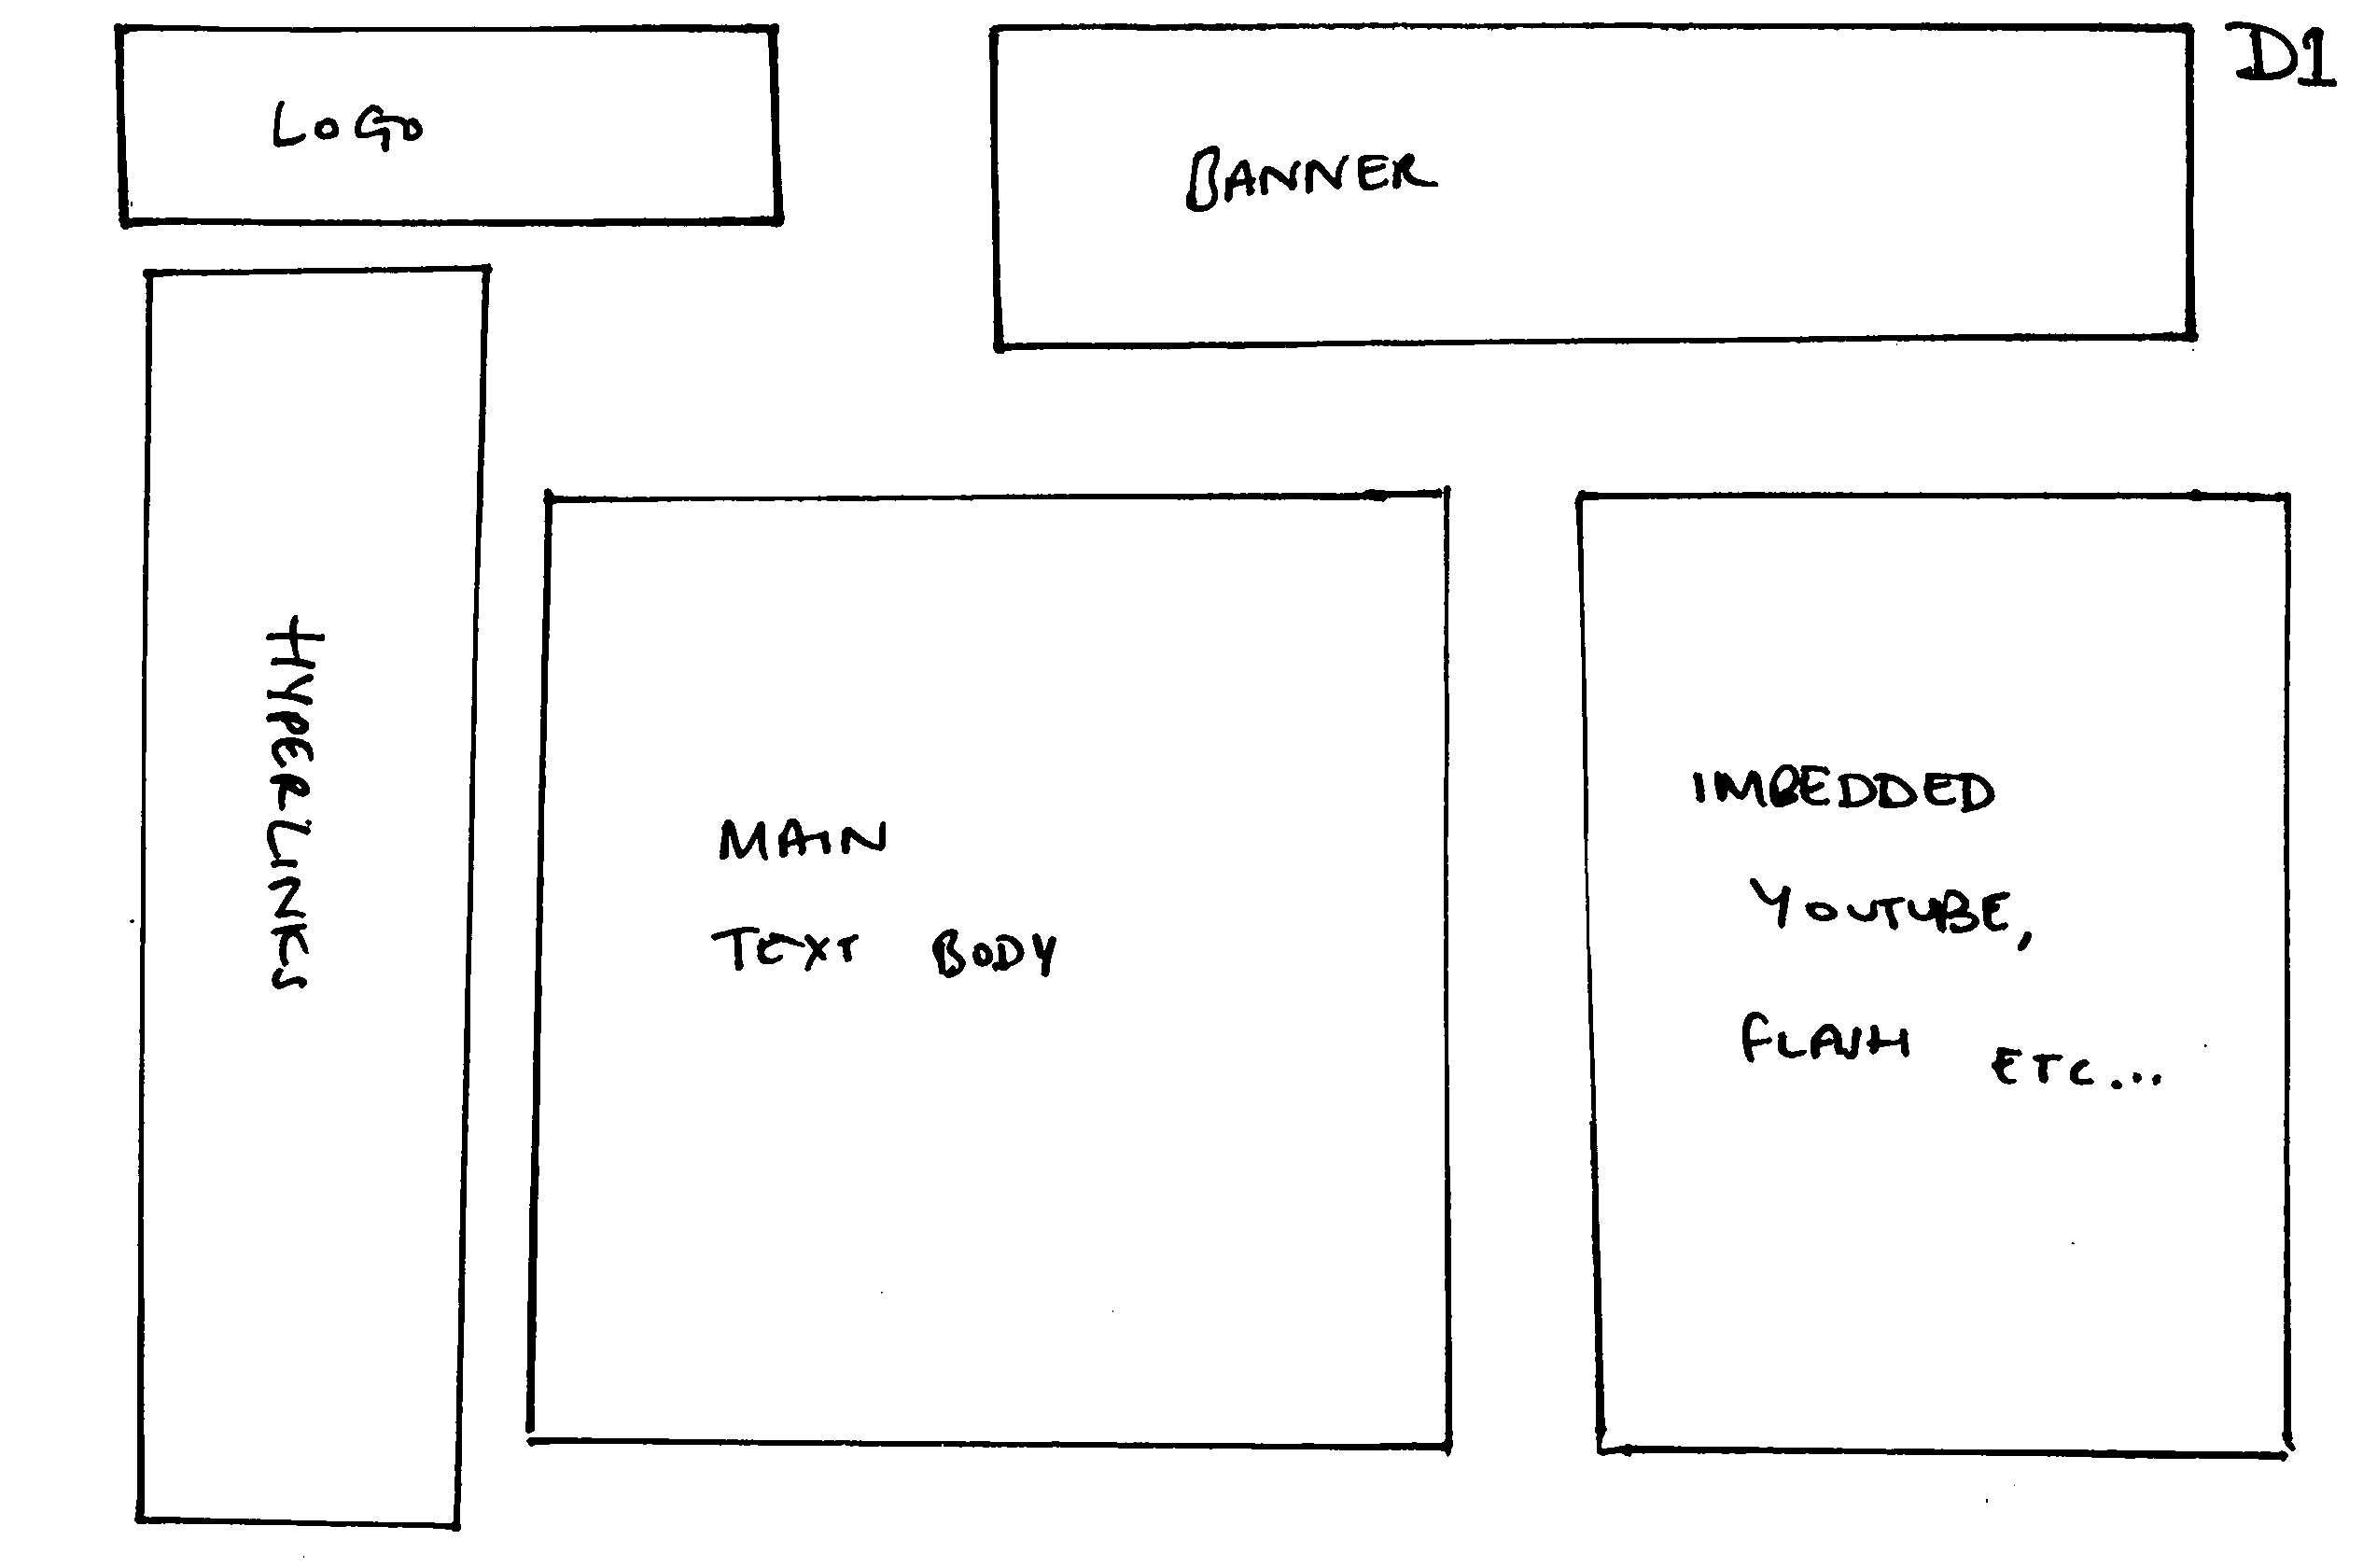 LOGO
BANNER
D1
HYPERLINKS
MAIN
TEXT BODY
IMBEDDED
YOUTUBE,
FLASH ETC...